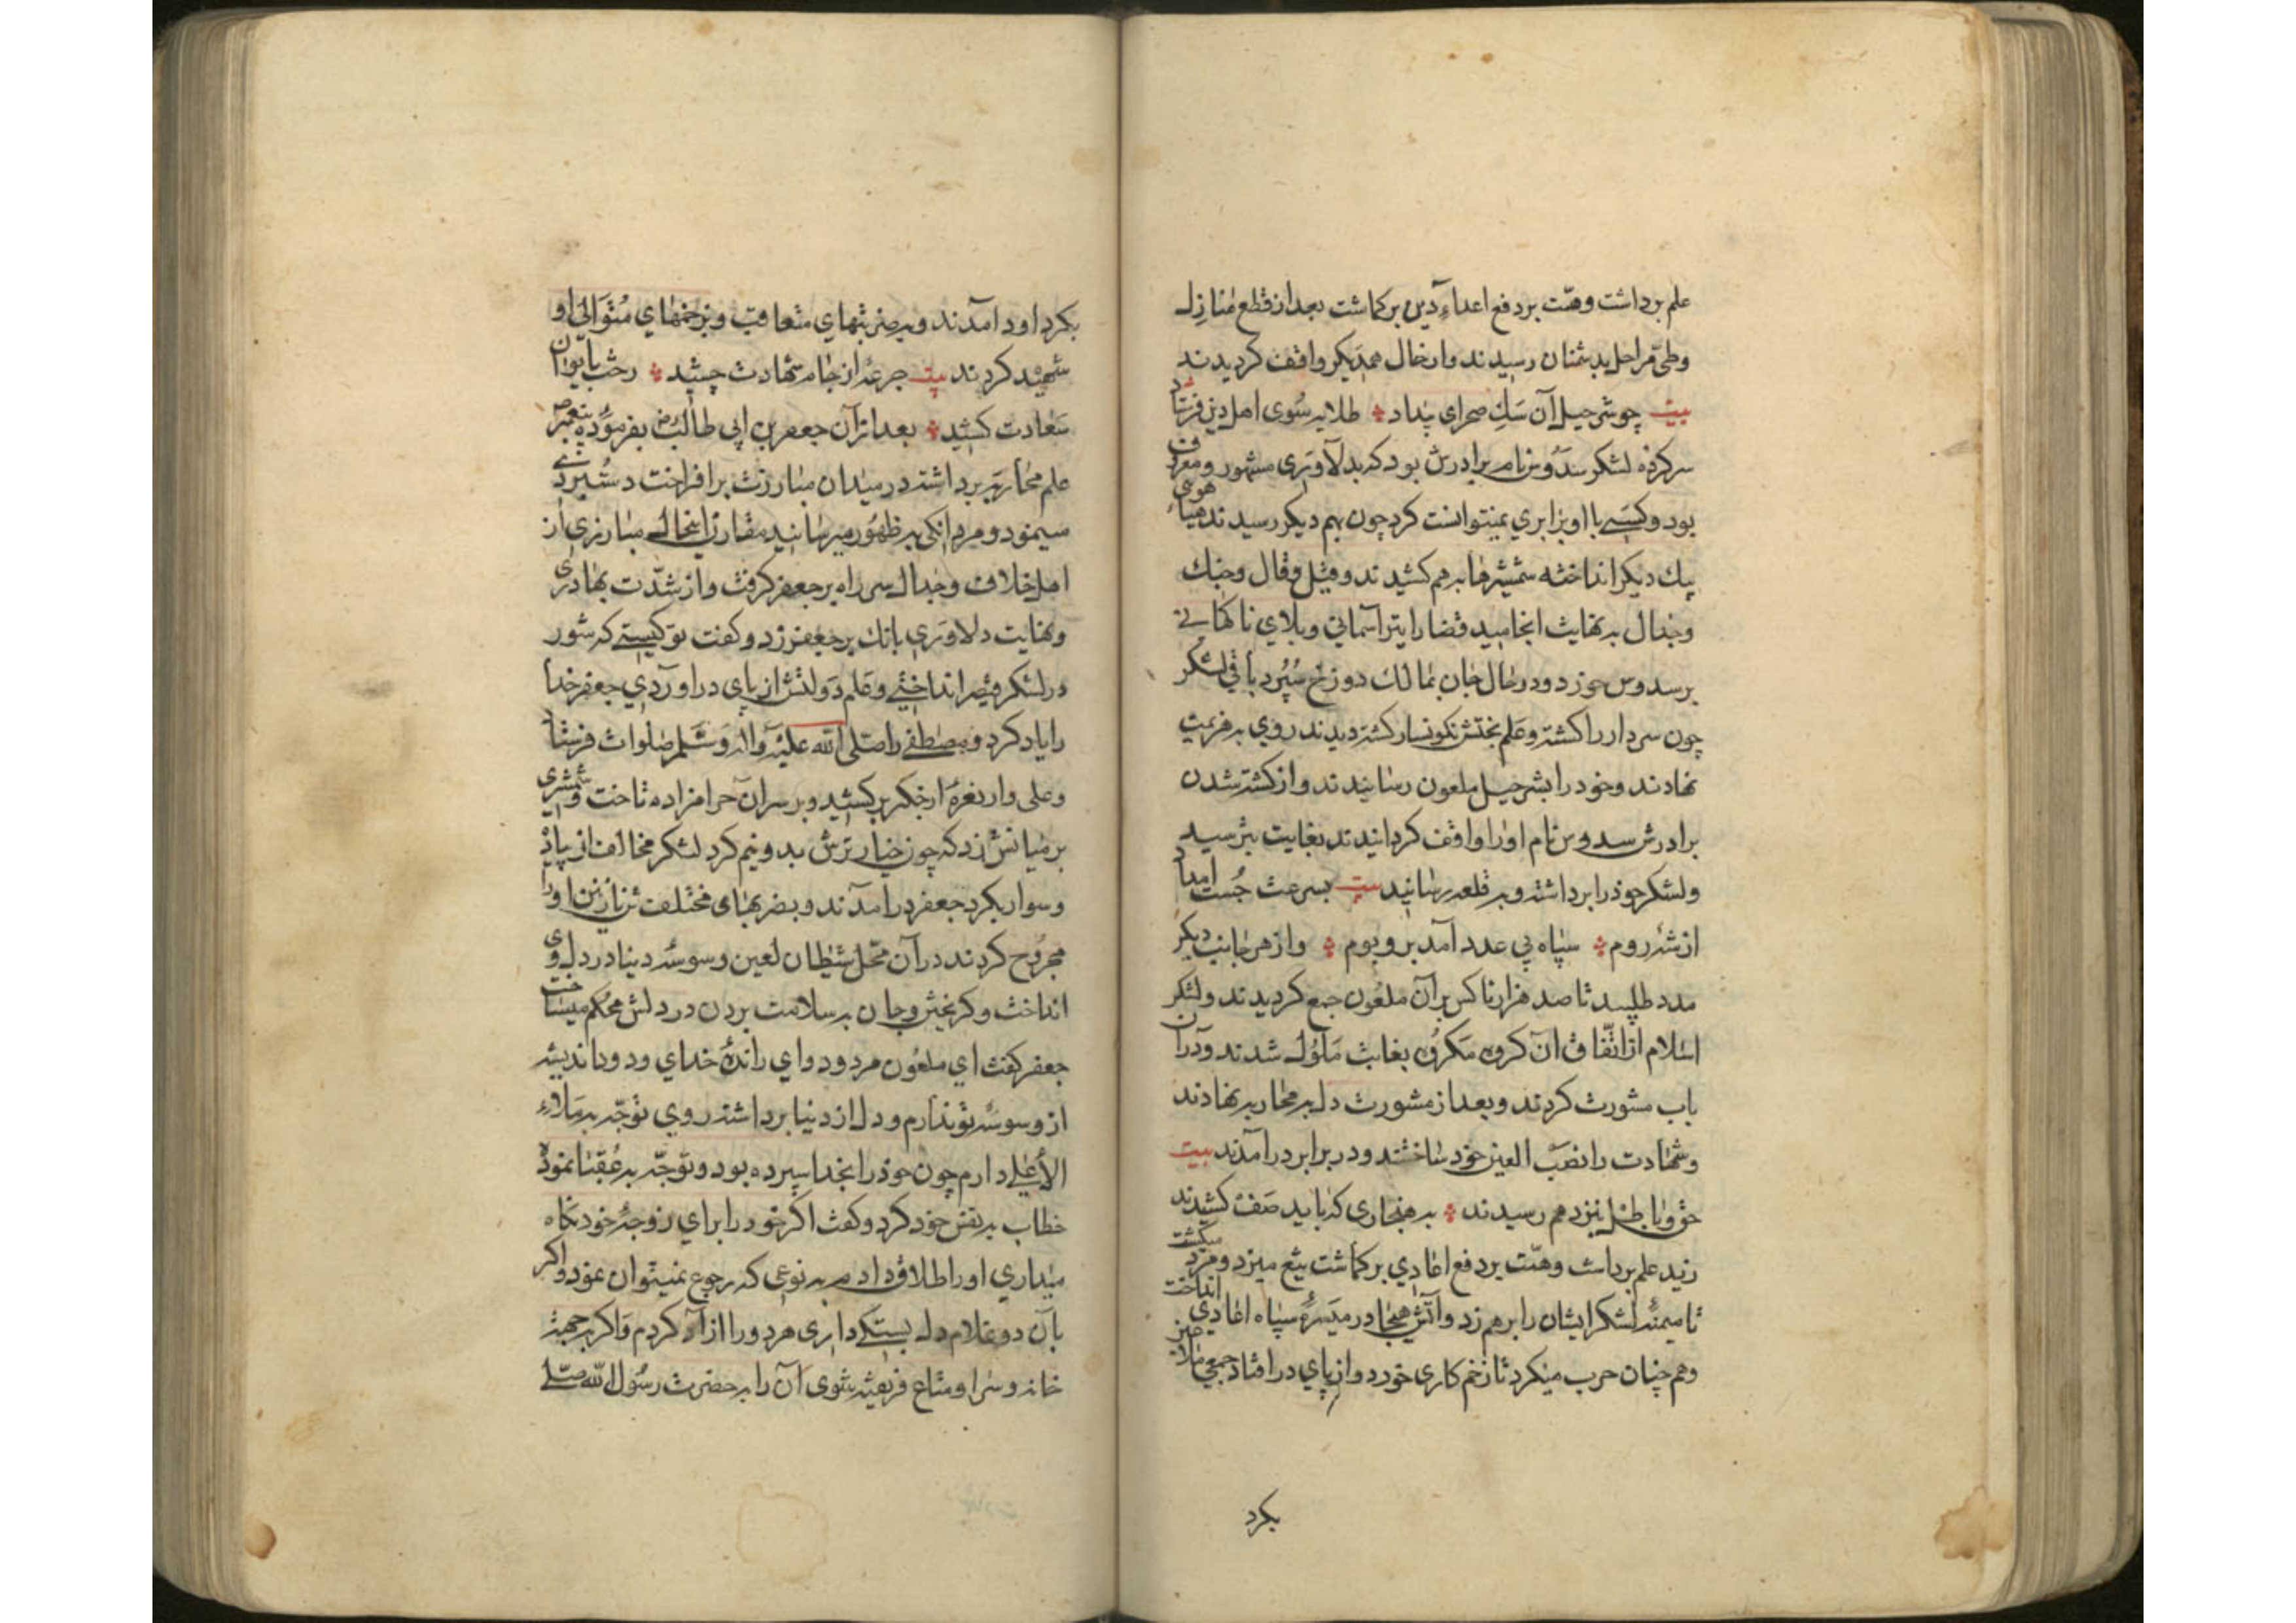 علم برداشت و همّت بر دفع اعداءِ دین برکماشت بعد از قطع منازل
و طی مراحل بدشمنان رسیدند و از حال همدیکر واقف کردیدند
بیت چو شرحیل آن سک صحرای بیداد طلایه سوی اهل دین فرستاد
سرکرده لشکر سدوس نام برادرش بود که بدلاوری مشهور و معروف
بود و کسی با او برابری نمیتوانست کرد چون بهم دیکر رسیدند هیاهوی
بیک دیکر انداخته شمشیرها بر هم کشیدند و قیل و قال و جنک
و جدال به نهایت انجامید قضا را تیر آسمانی و بلای ناکهانی
بر سدوس خورد و در حال جان بمالک دوزخ سپرد باقی لشکر
چون سردار را کشته و علم بختش نکونسار کشته دیدند روی به هزیمت
نهادند و خود را بشرحیل ملعون رسانیدند و از کشته شدن
برادرش سدوس نام او را واقف کردانیدند بغایت بترسید
و لشکر خود را برداشته و به قلعه رسانید بیت بسرعت جُست امداد
از شه روم سپاه بی عدد آمد بر و بوم و از هر جانب دیکر
مدد طلبید تا صد هزار ناکس بر آن ملعون جمع کردیدند و لشکر
اسلام از اتّفاق آن کروه مکروه بغایت ملول شدند و در آن
باب مشورت کردند و بعد از مشورت دل به محاربه نهادند
و شهادت را نصب العین خود ساختند و در برابر درآمدند بیت
حق و باطل بنزد هم رسیدند به هنجاری که باید صف کشیدند
زید علم برداشت و همّت بر دفع اعادی برکماشت تیغ میزد و مرد میکشت
تا میمنهٔ لشکر ایشان را برهم زد و آتش هیجا در میسرهٔ سپاه اعادی انداخت
و هم چنان حرب میکرد تا زخم کاری خورد و از پای در افتاد جمعی
بکرد
بکرد او در آمدند و به ضربتهای متعاقب و بزخمهای متوالی او
شهید کردند بیت جرعهٔ از جام شهادت چشید رخت بایوان
سعادت کشید بعد از آن جعفر بن ابی طالب رض بفرموده پیغمبر ص
علم محاربه برداشته در میدان مبارزت برافراخت دستبردی
مینمود و مردانکی به ظهور میرسانید مقارن اینحال مبارزی از
اهل خلاف و جدال سر راه بر جعفر کرفت و از شدّت بهادری
و نهایت دلاوری بانک بر جعفر زد و کفت تو کیستی که شور
در لشکر قیصر انداختی و علم دولتش از پای در اوردی جعفر خدا
را یاد کرد و به مصطفی را صلی الله علیه و آله و سلم صلوات فرستاد
و علی وار نعرهٔ از جکر برکشید و بر سر آن حرامزاده تاخت و شمشیری
بر میانش زد که چون خیار ترش بدو نیم کرد لشکر مخالف از پیاده
و سوار بکرد جعفر درآمدند و بضربهای مختلف تن نازنین او را
مجروح کردند در آن محل شیطان لعین وسوسهٔ دنیا در دل وی
انداخت و کریختن و جان به سلامت بردن در دلش محکم میساخت
جعفر کفت ای ملعون مردود و ای راندهٔ خدای ودود اندیشه
از وسوسهٔ تو ندارم و دل از دنیا برداشته روی توجّه به ملاء
الأعلی دارم چون خود را بخدا سپرده بود و توجّه به عقبا نموده
خطاب به نفس خود کرد و کفت اکر خود را برای زوجهٔ خود نکاه
میداری او را طلاق دادم به نوعی که رجوع نمیتوان نمود و اکر
بآن دو غلام دل بستکی داری هر دو را ازاد کردم و اکر به جهة
خانه و سرا و متاع فریفته شوی آن را به حضرت رسول الله صلی